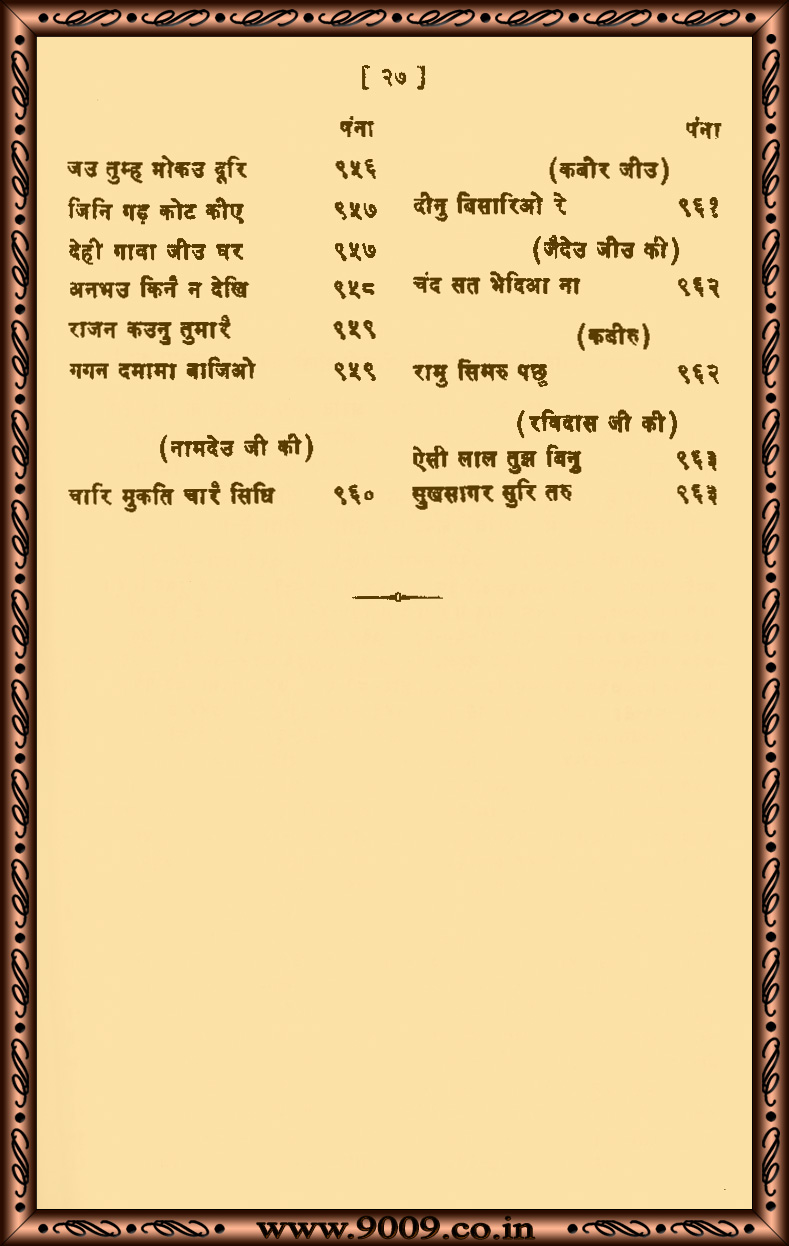 [ २७ ]
पंना
जउ तुम्ह मोकउ दूरि ९५६
जिनि गड़ कोट कीए ९५७
देही गावा जीउ घर ९५७
अनभउ किनै न देखि ९५८
राजन कउनु तुमारै ९५९
गगन दमामा बाजिओ ९५९
(नामदेउ जी की)
चारि मुकति चारै सिधि ९६०
पंना
(कबीर जीउ)
दीनु बिसारिओ रे ९६१
(जैदेउ जीउ की)
चंद सत भेदिआ ना ९६२
(कबीरु)
रामु सिमरु पछु ९६२
(रविदास जी की)
ऐसी लाल तुझ बिनु ९६३
सुखसागर सुरि तरु ९६३
www.9009.co.in